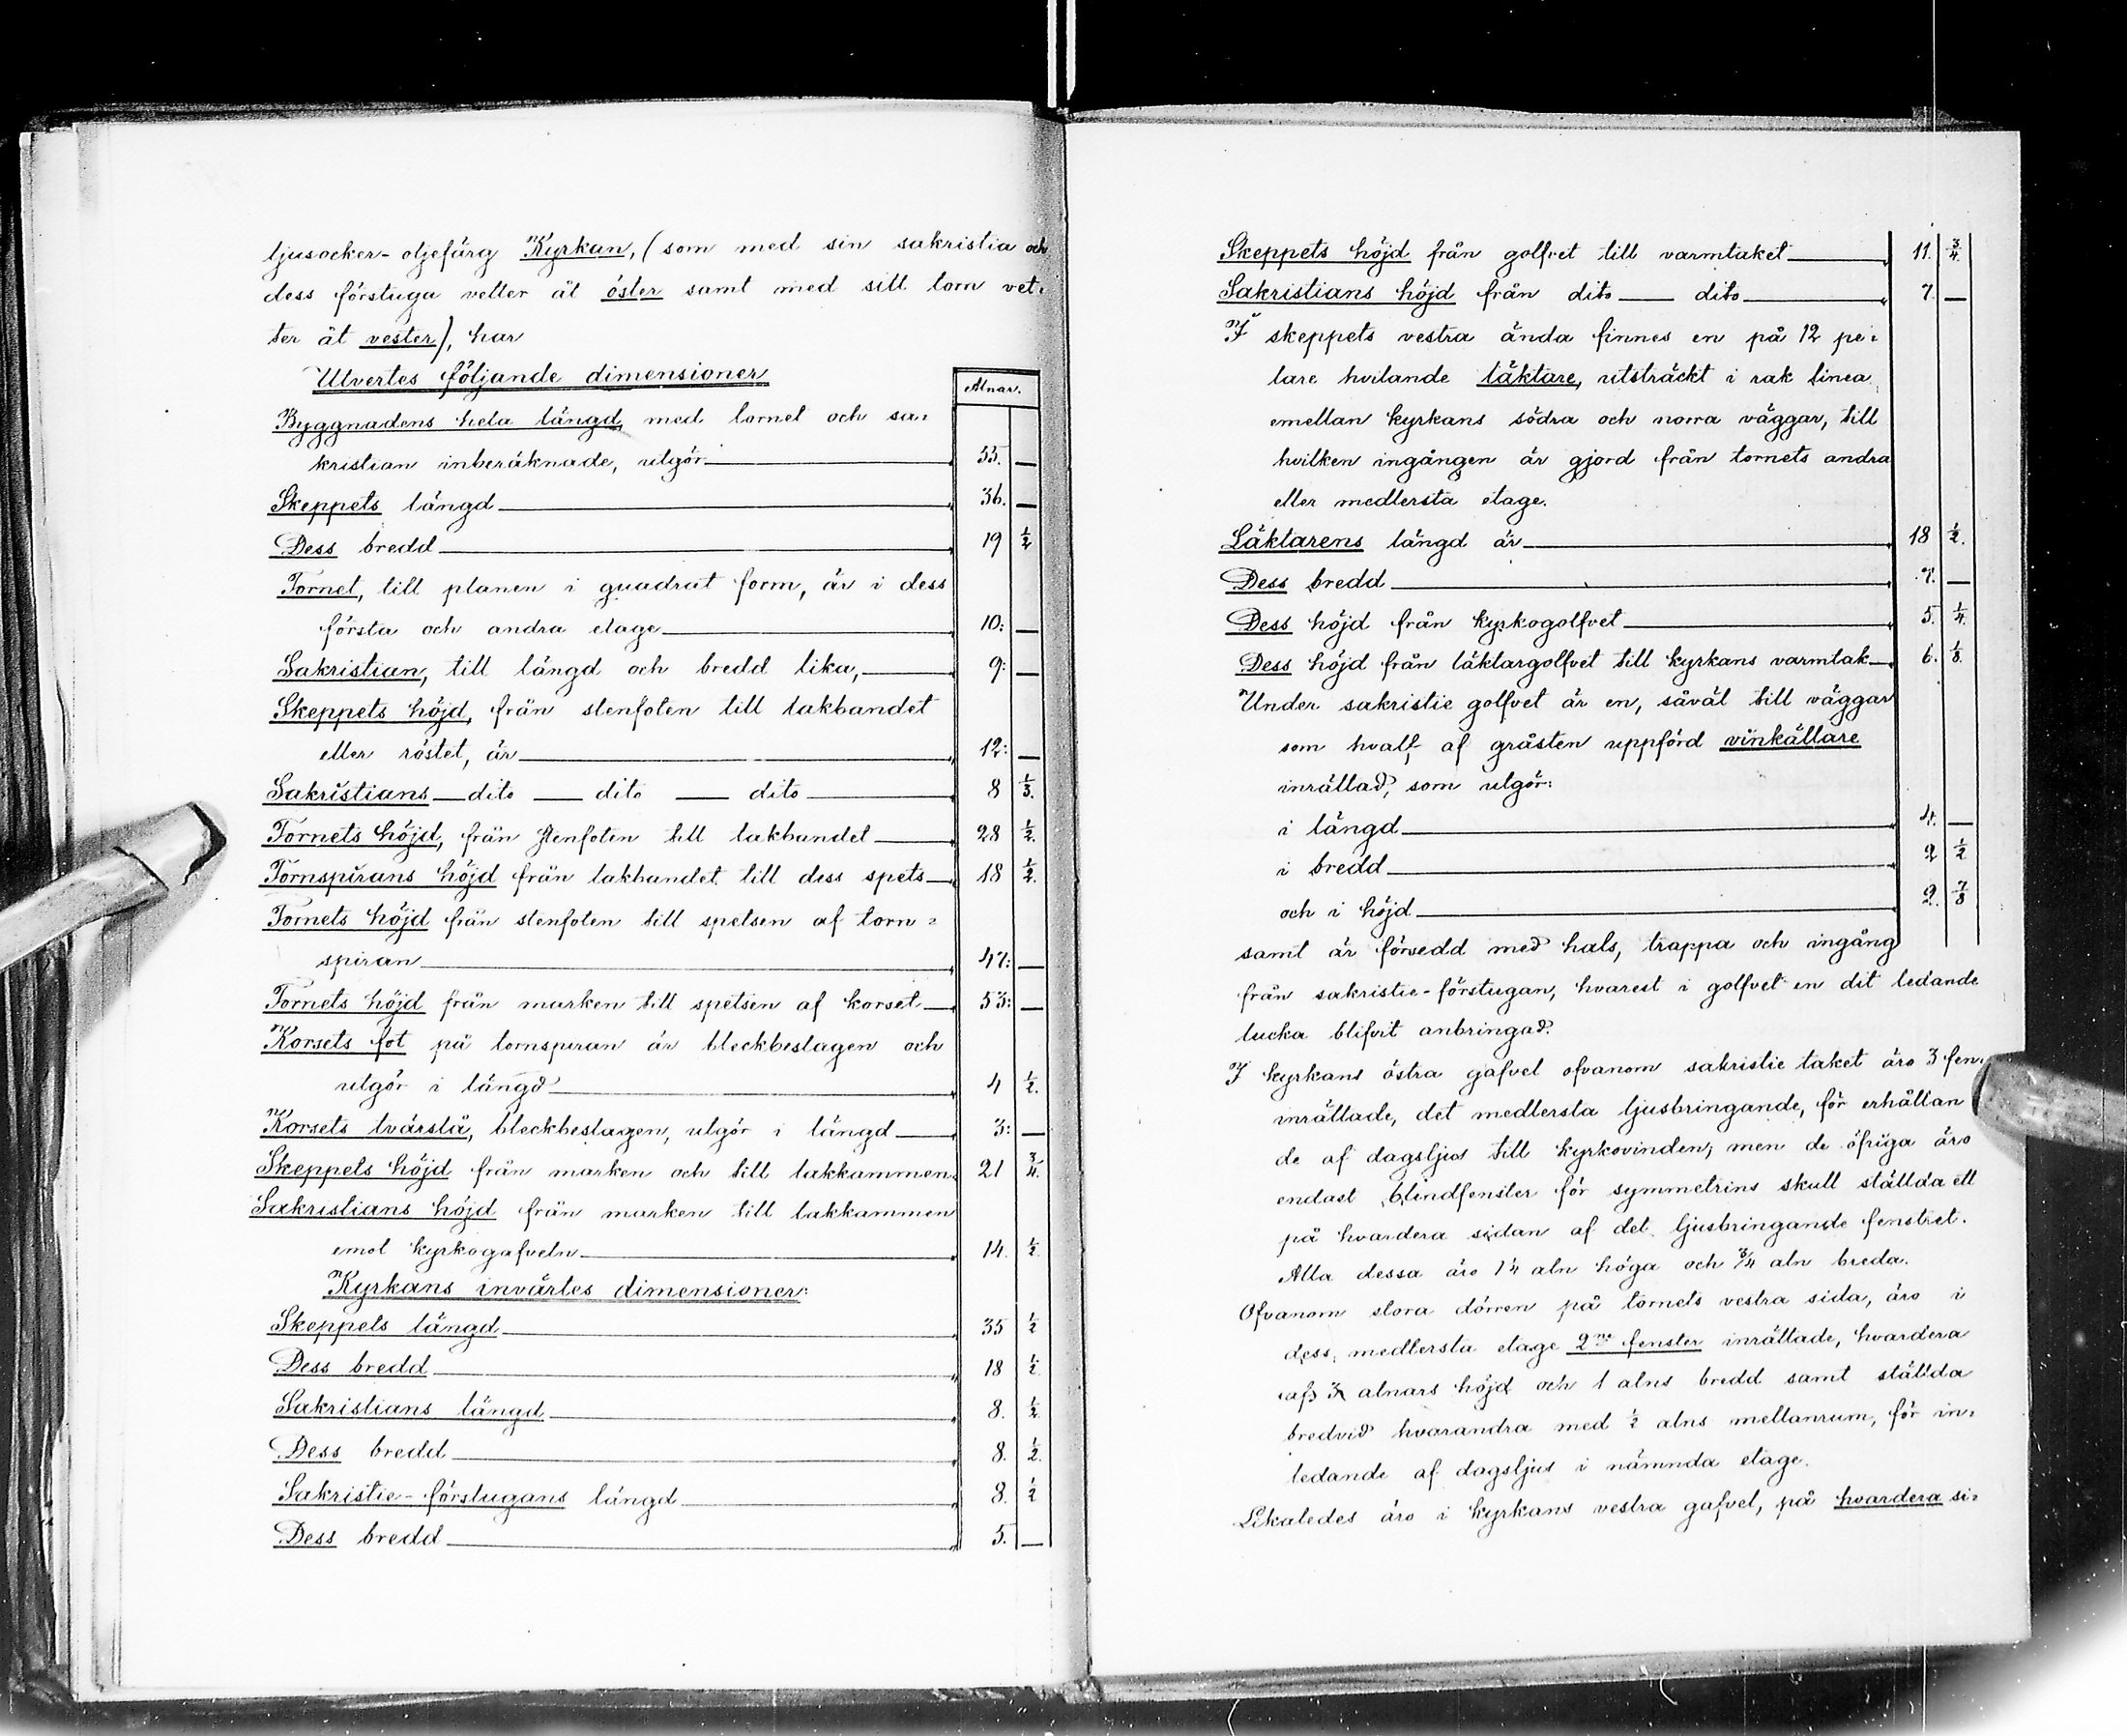 ljusocker-oljefärg Kyrkan, (som med sin sakristia och
dess förstuga vetter åt öster samt med sitt torn vet=
ter åt vester), har
Utvertes följande dimensioner
Alnar.
Byggnadens hela längd, med tornet och sa=
kristian inberäknade, utgör 55. —
Skeppets längd 36. —
Dess bredd 19 1/2
Tornet, till planen i quadrat form, är i dess
första och andra etage 10: —
Sakristian, till längd och bredd lika, 9: —
Skeppets höjd, från stenfoten till takbandet
eller röstet, är 12: —
Sakristians — dito — dito — dito 8 1/3.
Tornets höjd, från stenfoten till takbandet 28 1/2.
Tornspirans höjd från takbandet till dess spets 18 1/2.
Tornets höjd från stenfoten till spetsen af torn=
spiran 47: —
Tornets höjd från marken till spetsen af korset 53: —
Korsets fot på tornspiran är bleckbeslagen och
utgör i längd 4 1/2.
Korsets tvärslå, bleckbeslagen, utgör i längd 3: —
Skeppets höjd från marken och till takkammen 21 3/4.
Sakristians höjd från marken till takkammen
emot kyrkogafveln 14. 1/2.
Kyrkans invärtes dimensioner:
Skeppets längd 35 1/2
Dess bredd 18 1/2
Sakristians längd 8. 1/2.
Dess bredd 8. 1/2.
Sakristie-förstugans längd 8. 1/2
Dess bredd 5. —
Skeppets höjd från golfvet till varmtaket 11. 3/4.
Sakristians höjd från dito — dito 7. —
I skeppets vestra ända finnes en på 12 pe=
lare hvilande läktare, utsträckt i rak linea
emellan kyrkans södra och norra väggar, till
hvilken ingången är gjord från tornets andra
eller medlersta etage.
Läktarens längd är 18 1/2.
Dess bredd 7. —
Dess höjd från kyrkogolfvet 5. 1/4.
Dess höjd från läktargolfvet till kyrkans varmtak 6. 1/8.
Under sakristie golfvet är en, såväl till väggar
som hvalf, af gråsten uppförd vinkällare
inrättad, som utgör:
i längd 4. —
i bredd 2 1/2
och i höjd 2. 7/8
samt är försedd med hals, trappa och ingång
från sakristie-förstugan, hvarest i golfvet en dit ledande
lucka blifvit anbringad.
I kyrkans östra gafvel ofvanom sakristie taket äro 3 fen
inrättade, det medlersta ljusbringande, för erhållan
de af dagsljus till kyrkovinden, men de öfriga äro
endast blindfenster för symmetrins skull ställda ett
på hvardera sidan af det ljusbringande fenstret.
Alla dessa äro aln höga och 3/4 aln breda.
Ofvanom stora dörren på tornets vestra sida, äro i
dess medlersta etage 2ne fenster inrättade, hvardera
af alnars höjd och 1 alns bredd samt ställda
bredvid hvarandra med 1/2 alns mellanrum, för in=
ledande af dagsljus i nämnda etage.
Likaledes äro i kyrkans vestra gafvel, på hvardera si=